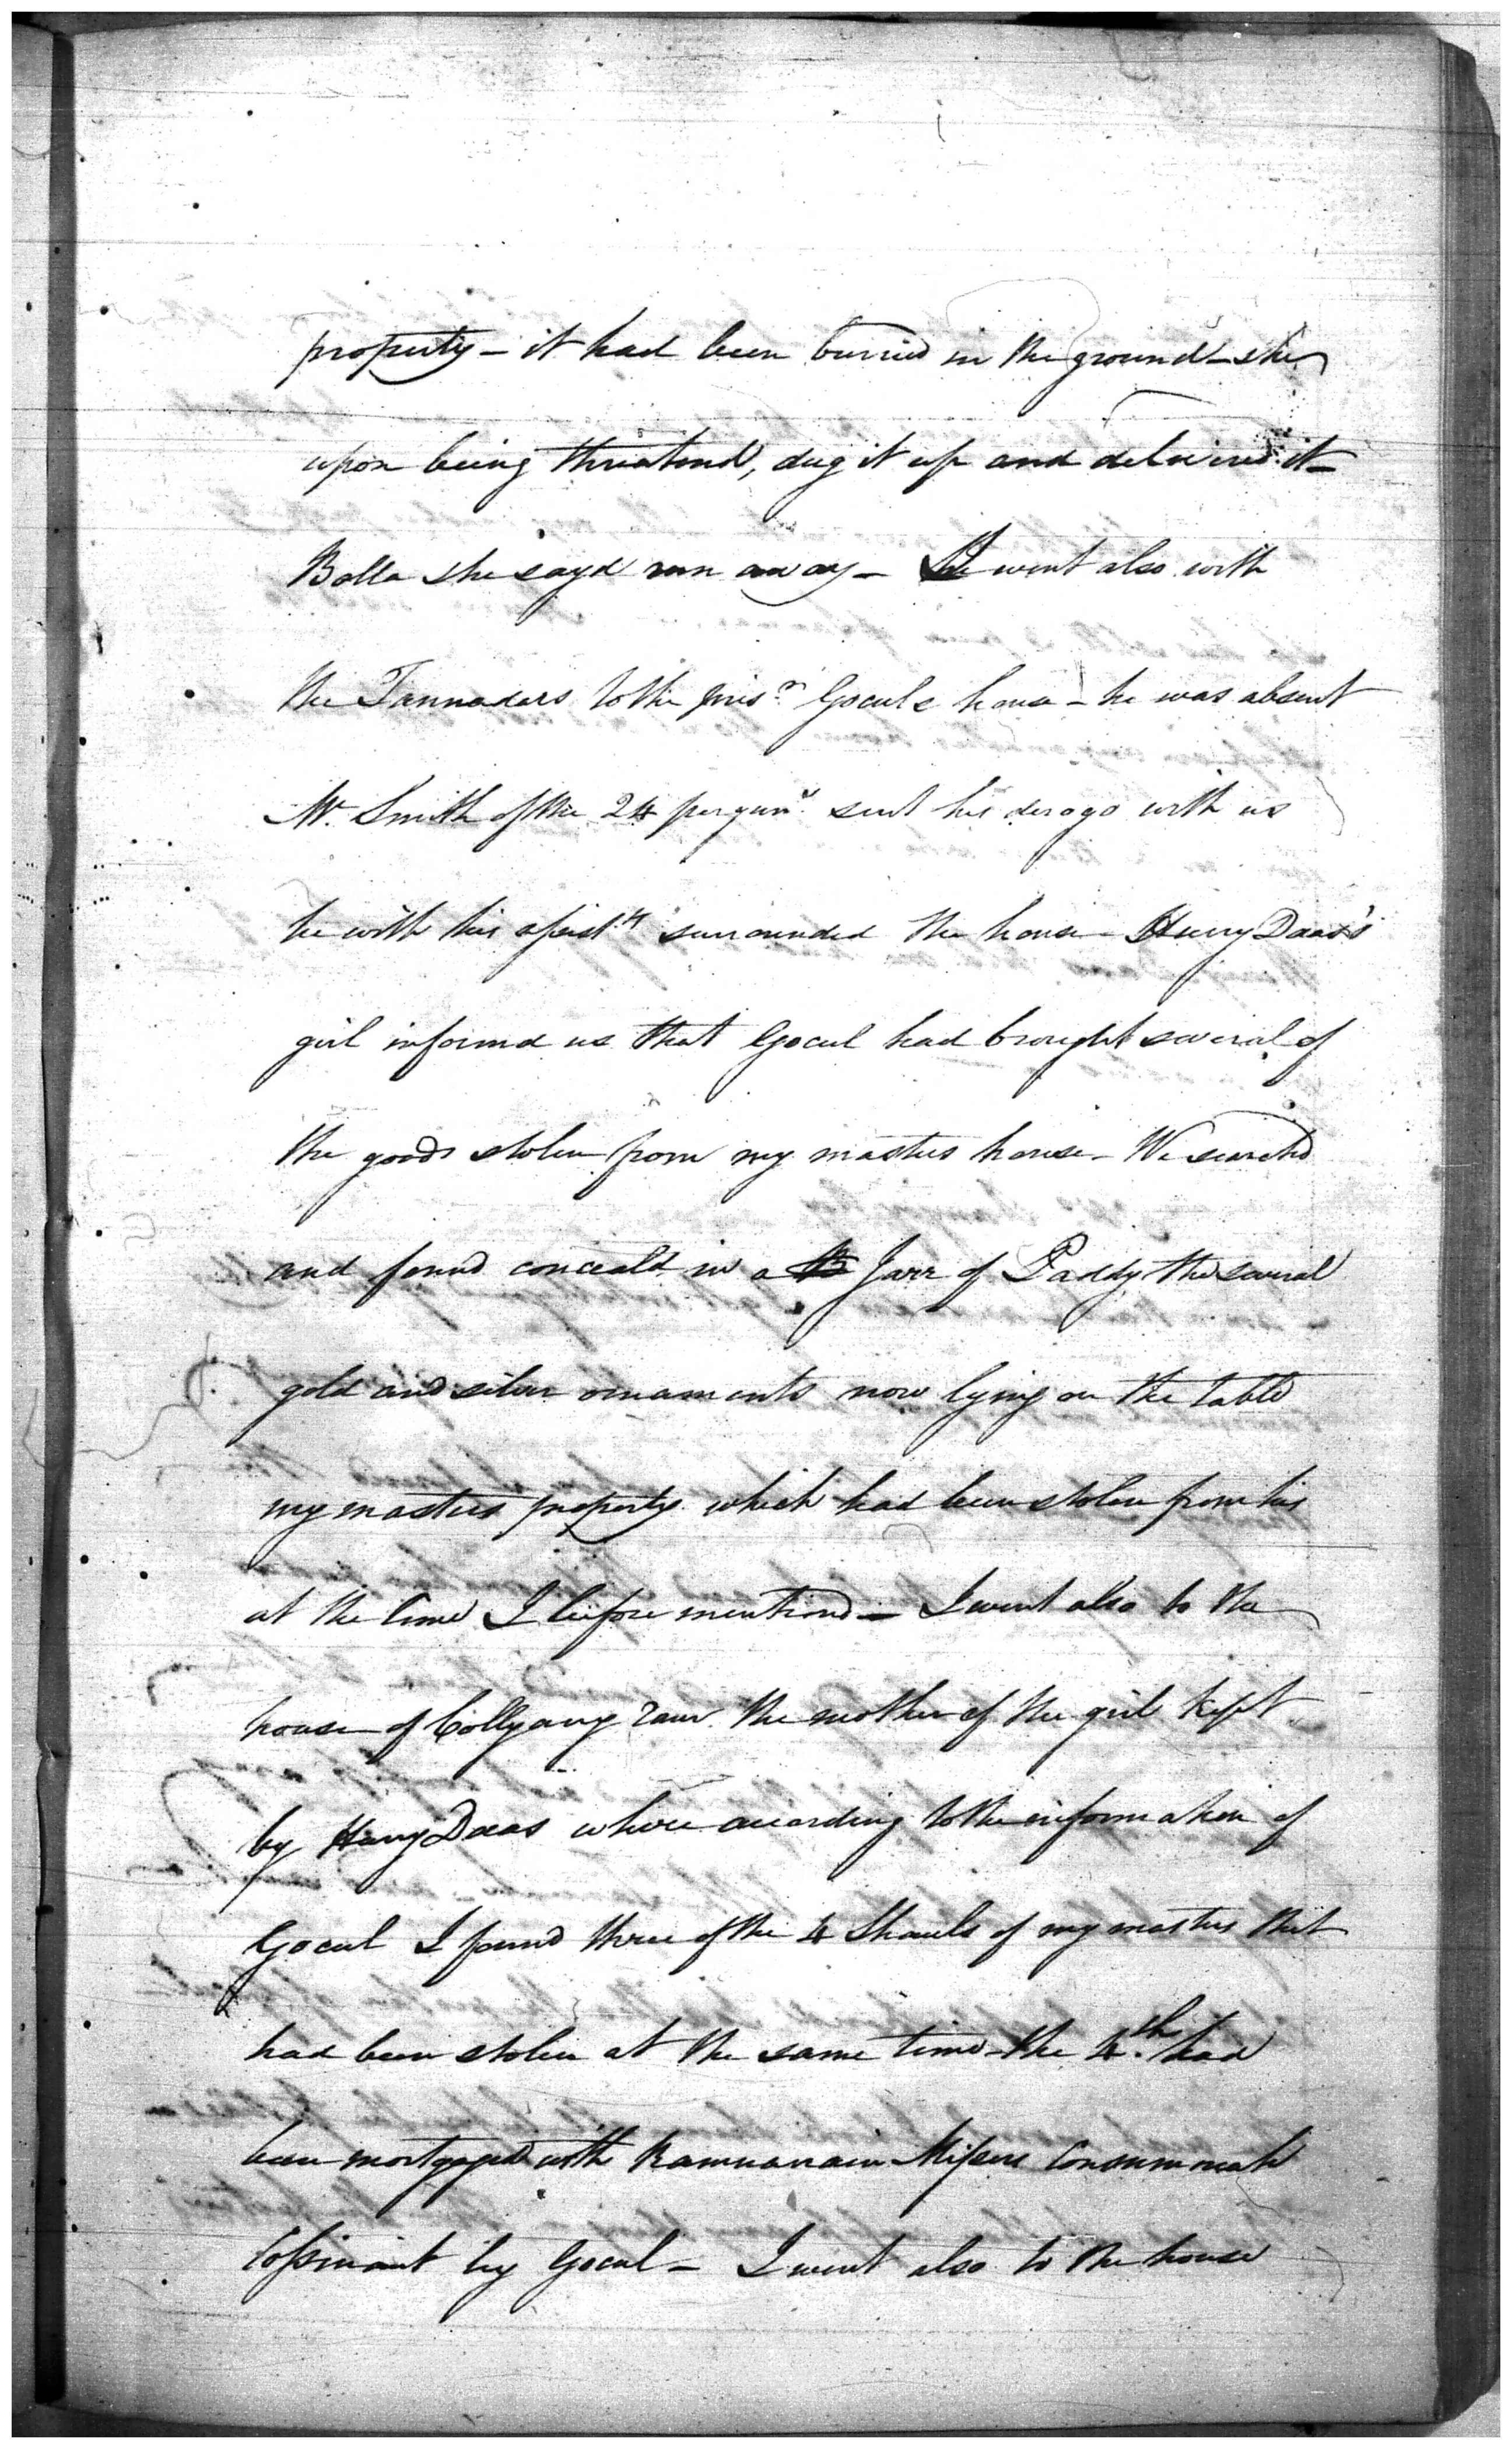 property - it had been burried in the ground - she
upon being threatend, dug it up and delivered it -
Bolla she sayd run away - I went also with
the Tannadars to the prisr. Gocul's house - he was absent
Mr. Smith of the 24 perguns. sent his derogo with us
he with his assistts surrounded the house - Hurry Daas's
girl informd us that Gocul had brought several of
the goods stolen from my masters house - We searchd
and found conceald in a Jarr of Paddy the several
gold and silver ornaments now lying on the table
my masters property which had been stolen from his
at the time I before mentiond - I went also to the
house of the mother of the girl kept
by Hurry Daas where according to the information of
Gocul I found three of the 4 Shauls of my masters that
had been stolen at the same time - the 4th. had
been mortgaged with Ramnarain Missers
by Gocul - I went also to the house